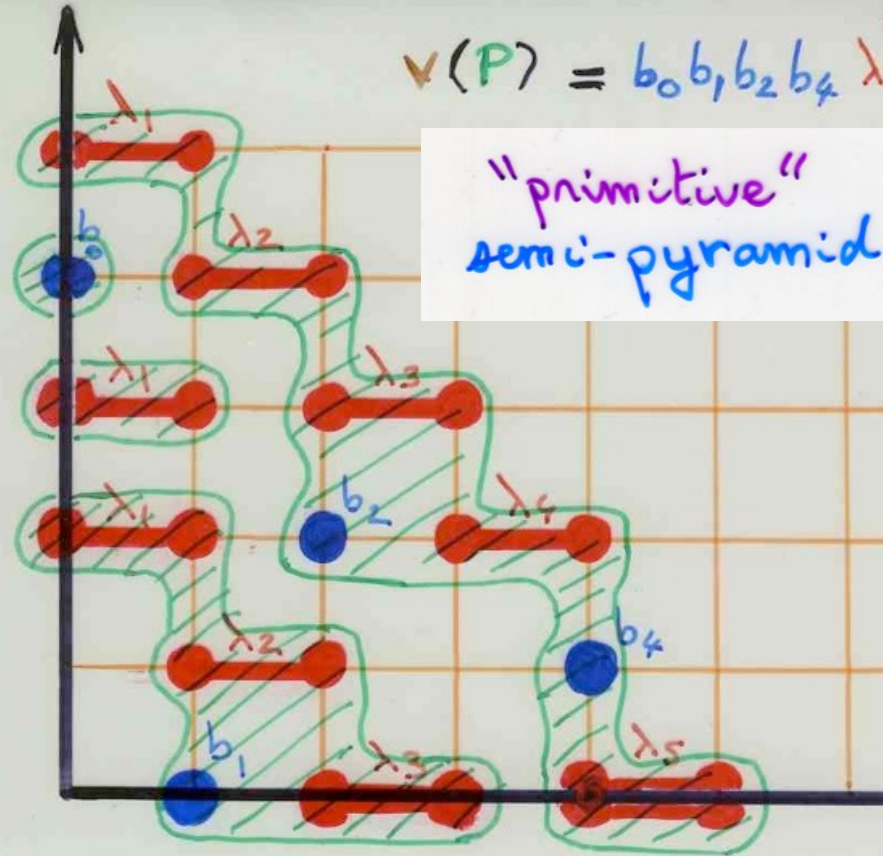 v(P) = b₀b₁b₂b₄ λ
λ₁
"primitive"
semi-pyramid
b₀
λ₂
λ₁
λ₃
λ₁
b₂
λ₄
λ₂
b₄
b₁
λ₃
λ₅